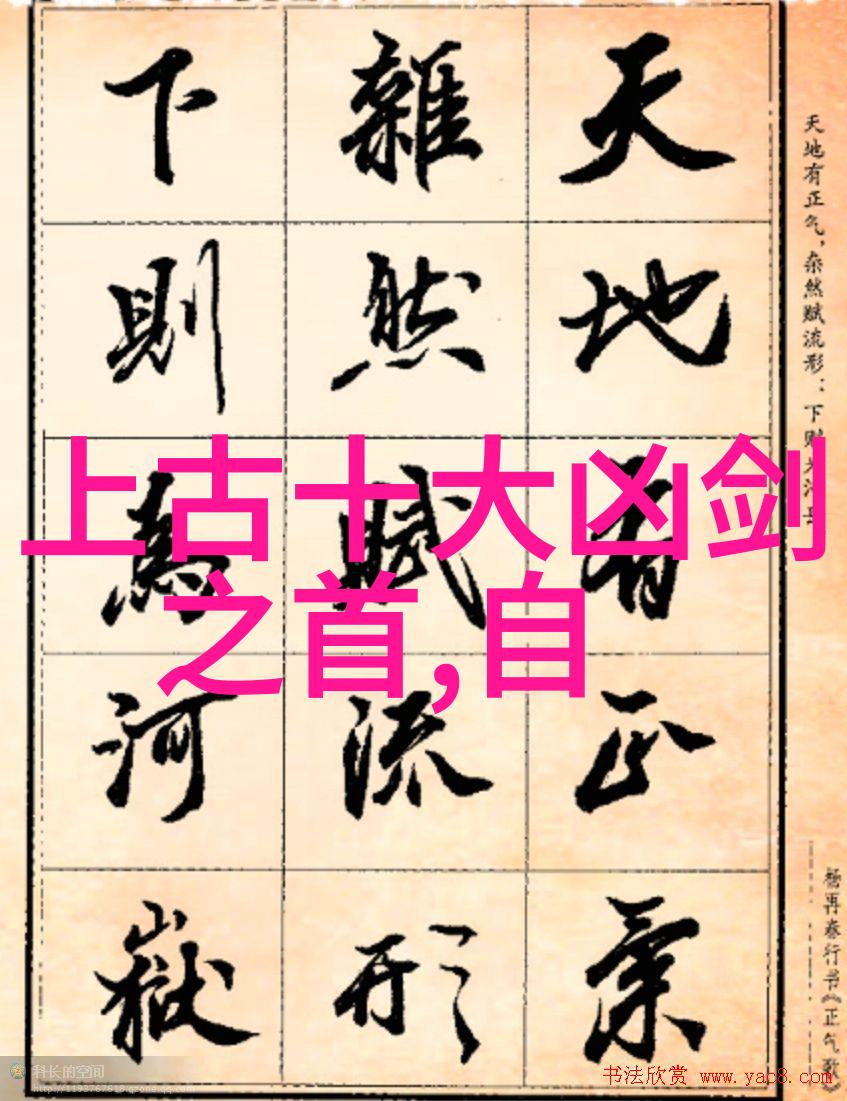 上古十大凶剑
之首,自
天地有正气，杂然赋流形：下则为河岳
天地有正氣
雜然賦流形
下則為河嶽
杨再春行书《正气歌》
科长的空间
http://1193767618.qzone.qq.com
书法欣赏 www.yac8.com